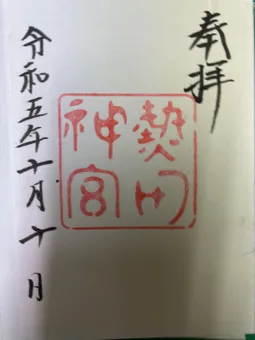 奉拝
熱田
神宮
令和五年十月十日